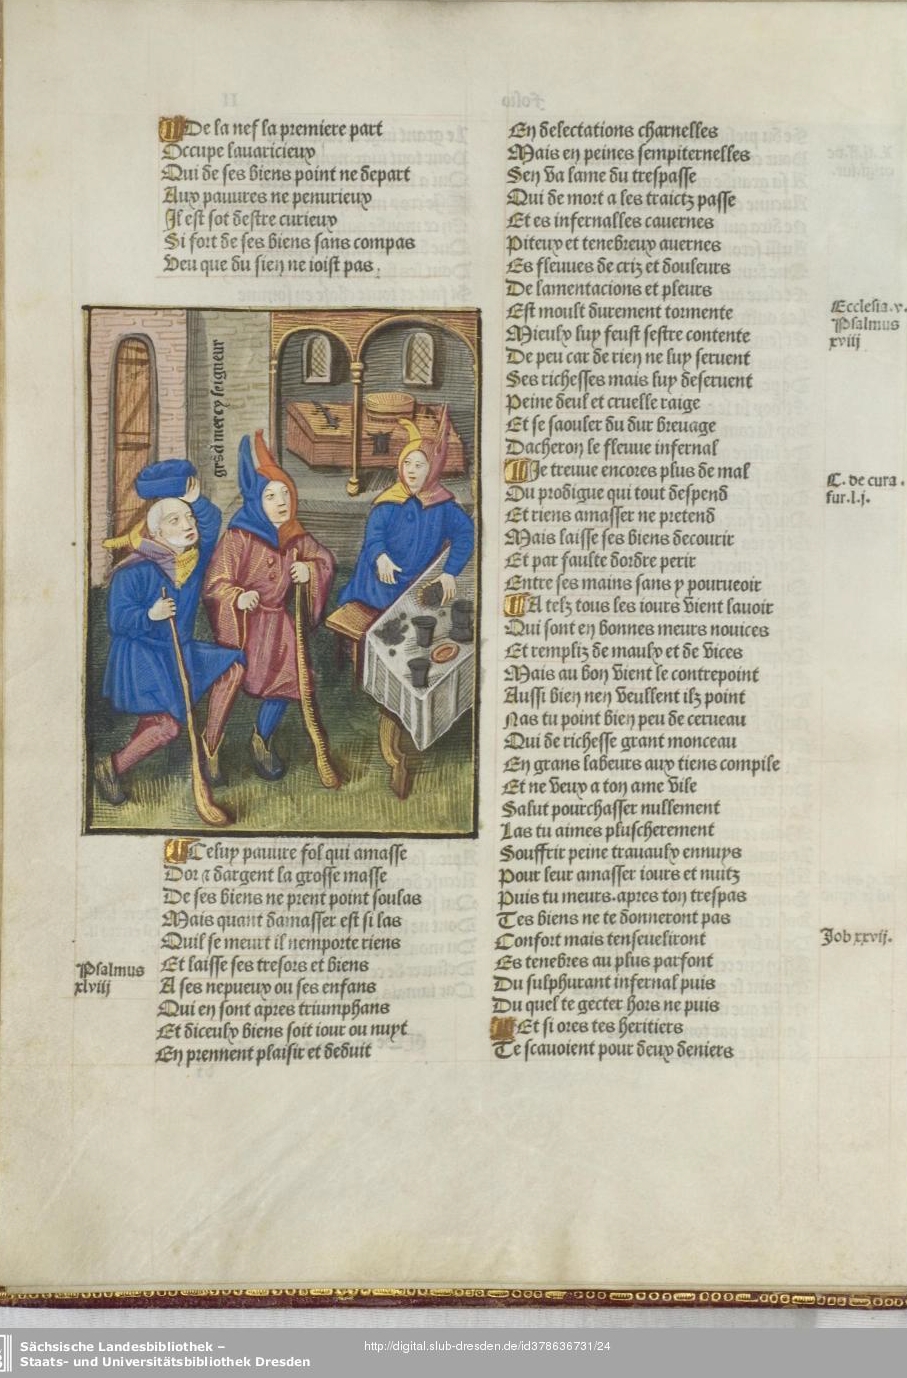 De la nef la premiere part
Occupe lauaricieux
Qui de ses biens point ne depart
Aux pauures ne penurieux
Il est sot destre curieux
Si fort de ses biens sans compas
Veu que du sien ne ioist pas.
grs d mercy seigneur
Celuy pauure fol qui amasse
Dor & dargent la grosse masse
De ses biens ne prent point soulas
Mais quant damasser est si las
Quil se meurt il nemporte riens
Et laisse ses tresors et biens
A ses nepueux ou ses enfans
Qui en sont apres triumphans
Et diceulx biens soit iour ou nuyt
En prennent plaisir et deduit
Psalmus
xlviij
En delectations charnelles
Mais en peines sempiternelles
Sen va lame du trespasse
Qui de mort a les traictz passe
Et es infernalles cauernes
Piteux et tenebreux auernes
Es fleuues de criz et douleurs
De lamentacions et pleurs
Est moult durement tormente
Mieulx luy feust sestre contente
De peu car de rien ne luy seruent
Ses richesses mais luy deseruent
Peine deul et cruelle raige
Et se saouler du dur breuage
Dacheron le fleuue infernal
Je treuue encores plus de mal
Du prodigue qui tout despend
Et riens amasser ne pretend
Mais laisse ses biens decourir
Et par faulte dordre perir
Entre ses mains sans y pourueoir
A telz tous les iours vient lauoir
Qui sont en bonnes meurs nouices
Et rempliz de maulx et de vices
Mais au bon vient le contrepoint
Aussi bien nen veullent ilz point
Nas tu point bien peu de cerueau
Qui de richesse grant monceau
En grans labeurs aux tiens compile
Et ne veux a ton ame vile
Salut pourchasser nullement
Las tu aimes pluscherement
Souffrir peine trauaulx ennuys
Pour leur amasser iours et nuitz
Puis tu meurs.apres ton trespas
Tes biens ne te donneront pas
Confort mais tenseueliront
Es tenebres au plus parfont
Du sulphurant infernal puis
Du quel te gecter hors ne puis
Et si ores tes heritiers
Te scauoient pour deux deniers
Ecclesia.v.
Psalmus
xviij
C. de cura.
fur.l.j.
Job xxvij.
Sächsische Landesbibliothek –
Staats- und Universitätsbibliothek Dresden
http://digital.slub-dresden.de/id378636731/24